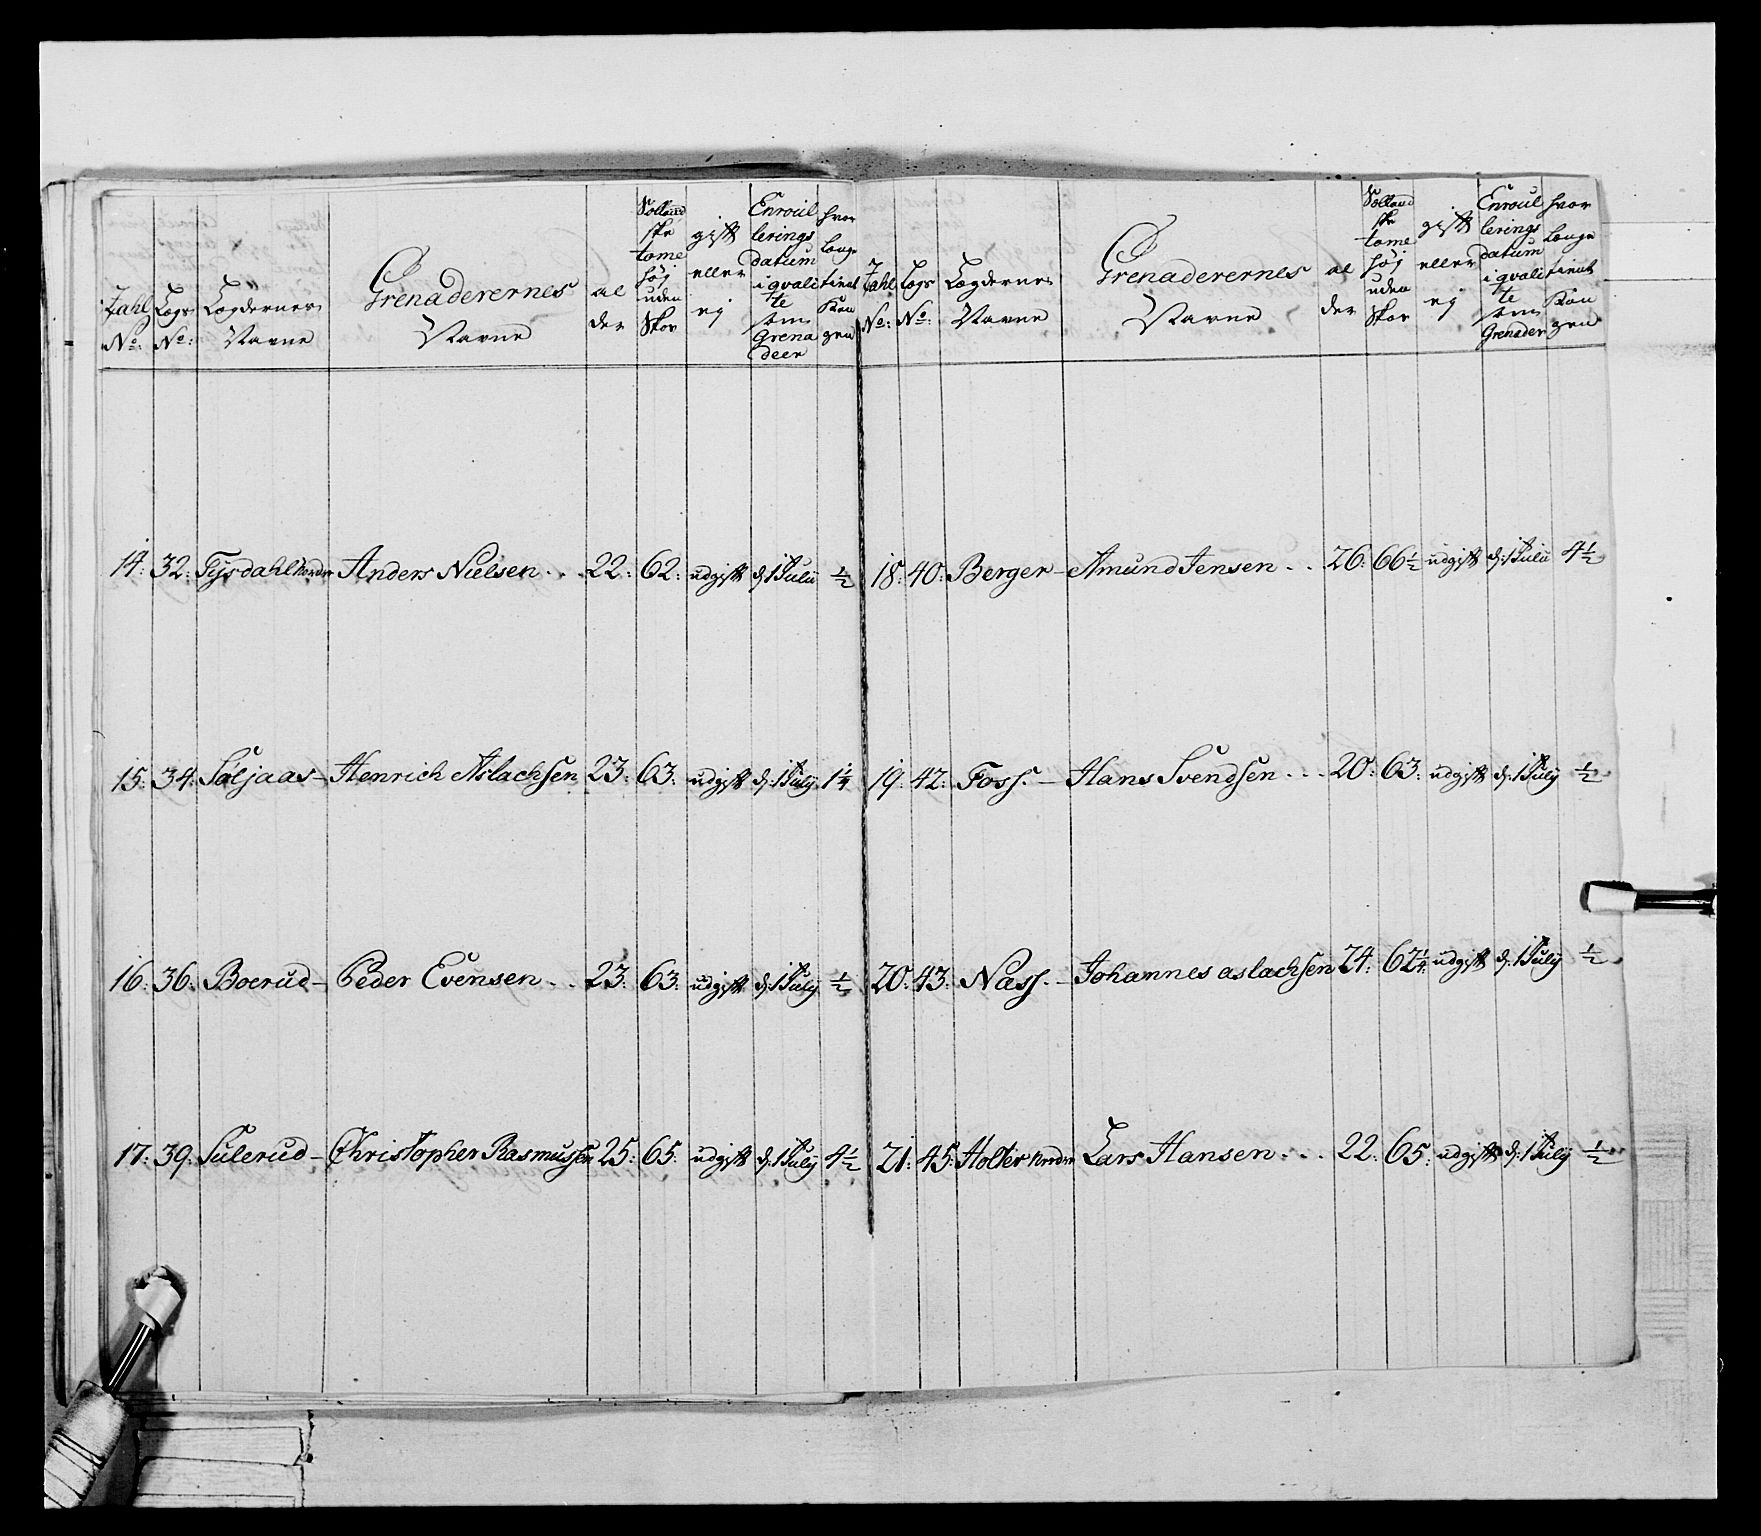 Zahl No:
Legs No:
Legdernes Navne
Grenaderernes Navne
al der
Solland ske tome höj uden Skoe
gift eller ej
Enroul lerings datum i qvali te som Grena deer
hvor længe tient Kon gen
14: 32: Fysdahl Nordre Anders Nielsen . . . 22: 62: udgift d: 1 Julii ½
15: 34: Saljaas – Henrich Aslachsen 23: 63: udgift d: 1 July 1¼
16: 36: Boerud – Peder Evensen . . 23: 63: udgift d: 1 July ½
17: 39: Sulerud – Christopher Rasmussen 25: 65: udgift d: 1 July 4½
Zahl No:
Legs No:
Legdernes Navne
Grenaderernes Navne
al der
Solland ske tome höj uden Skoe
gift eller ej
Enroul lerings datum i qvali te som Grenader
hvor længe tient Kon gen
18: 40: Berger – Amund Jensen . . 26: 66½ udgift d: 1 Julii 4½
19: 42: Foss. – Hans Svendsen . . . 20: 63: udgift d: 1 July ½
20: 43: Nass. – Johannes aslachsen 24: 62¼ udgift d: 1 July ½
21: 45: Holter Nordre Lars Hansen . . . 22: 65: udgift d: 1 July ½